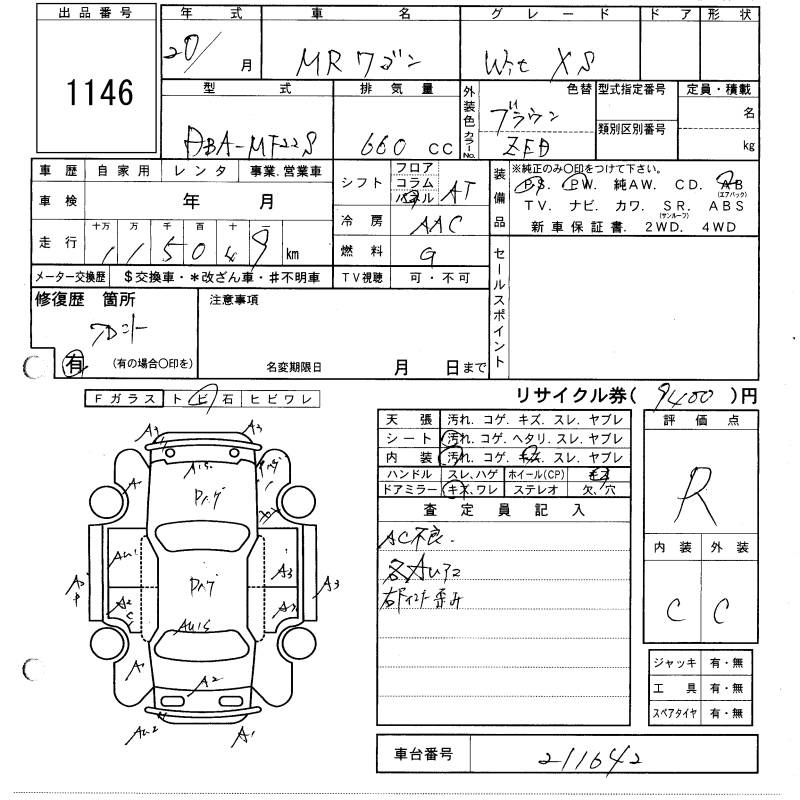 出品番号 年式 車名 グレード ドア 形状
1146 20/ 月 MRワゴン Wit XS
型式 排気量 外装色 色替 型式指定番号 定員・積載
DBA-MF22S 660 CC カラーNo. ブラウン 類別区別番号 名
ZED kg
車歴 自家用 レンタ 事業.営業車 シフト フロア コラム パネル AT 装備品 ※純正のみ〇印をつけて下さい。
PS. PW. 純AW. CD. AB (エアバック)
車検 年 月 TV. ナビ. カワ. SR. (サンルーフ) ABS
冷房 AAC 新車保証書. 2WD. 4WD
走行 十万 万 千 百 十 一 km
115049
燃料 G セールスポイント
メーター交換歴 $交換車・*改ざん車・#不明車 TV視聴 可・不可
修復歴 箇所 注意事項
フロント
有 (有の場合〇印を) 名変期限日 月 日まで
Fガラス トビ石 ヒビワレ リサイクル券( 9400 )円
天張 汚れ. コゲ. キズ. スレ. ヤブレ 評価点
シート 汚れ. コゲ. ヘタリ. スレ. ヤブレ
内装 汚れ. コゲ. キズ. スレ. ヤブレ R
ハンドル スレ、ハゲ ホイール(CP) キズ
ドアミラー キズ、ワレ ステレオ 欠、穴
査定員記入 内装 外装
AC不良. C C
各AUアリ
A3 A3
AU5 Pハゲ
A
AU1 A3 A3
Pハゲ
A2
AU5
A A2
AU2 A1
ジャッキ 有・無
工具 有・無
スペアタイヤ 有・無
車台番号 211642